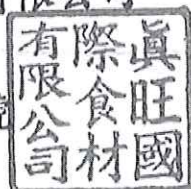 眞旺國
際食材
有限公司